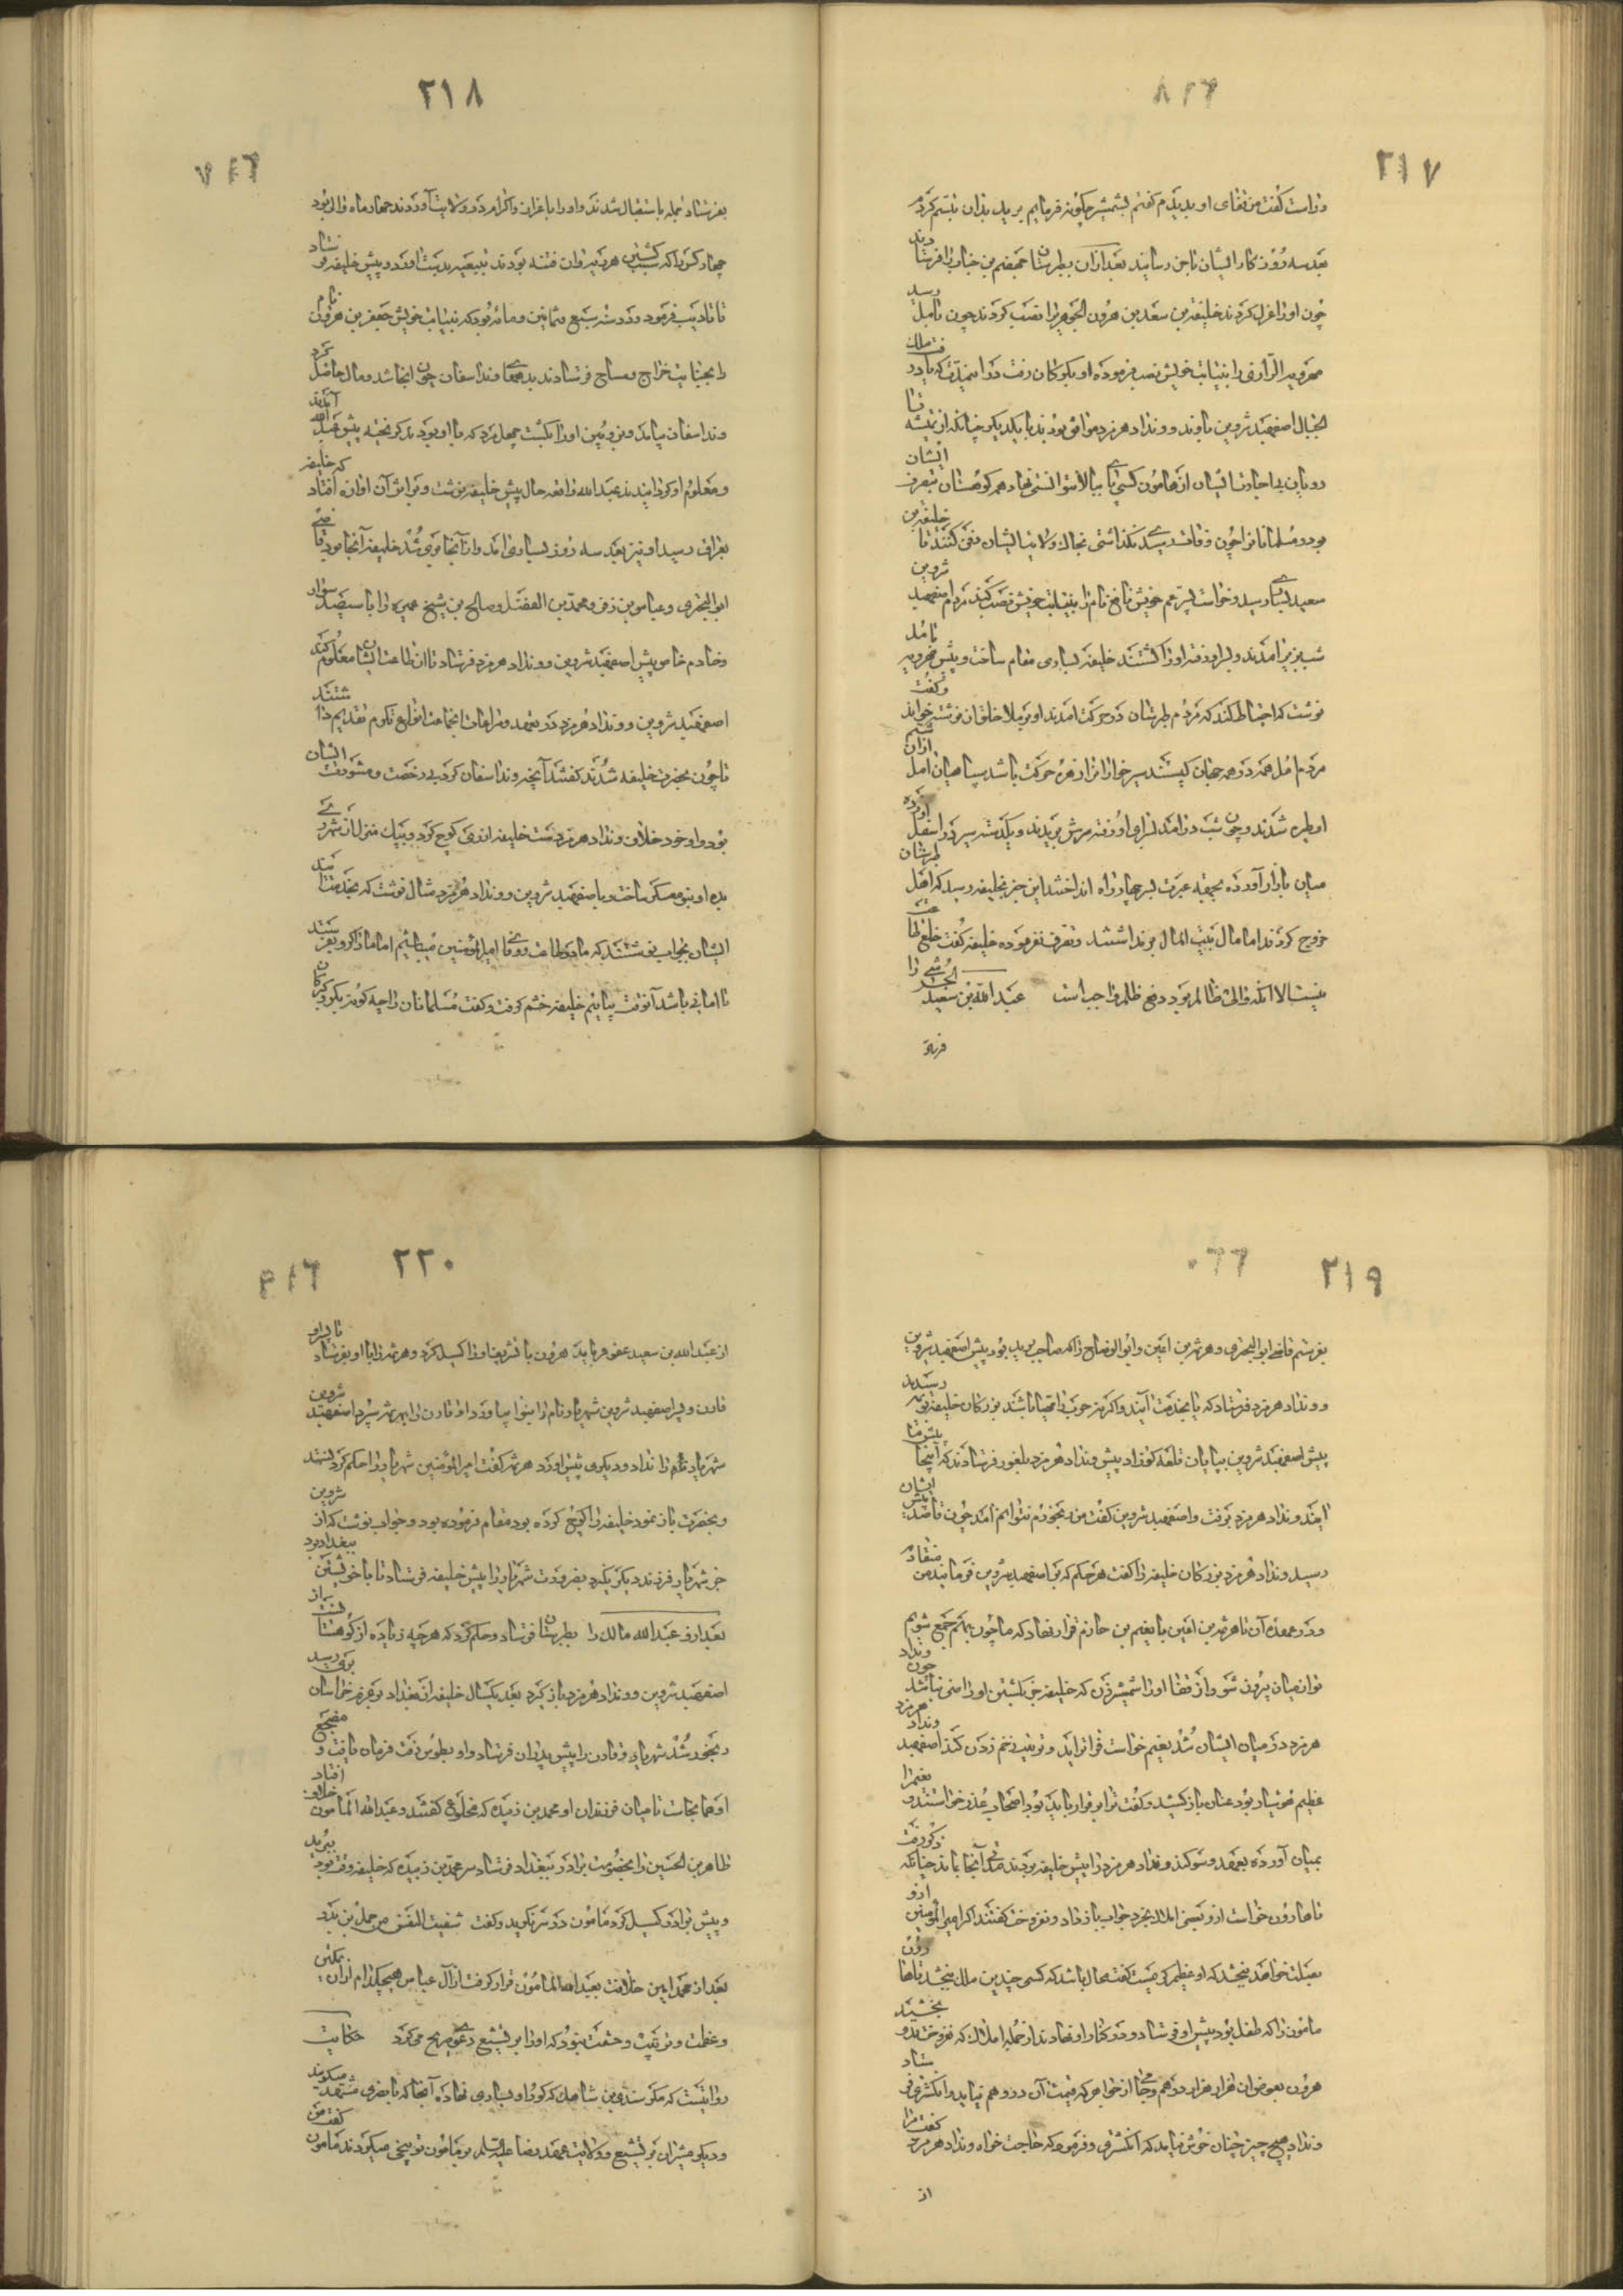 ۲۱۷
وراست گفت من قفای او بدیدم گفتم بشمشیر چگونه فرمایم برید بدان تبسم کرد
بعد سه روز کار ایشان باجن رسانید بعد ازان بطبرستان
چون اورا عزل کردند خلیفه بن سعد بن هرون الجوهری را نصب کردند چون بامل رسید
مهرویه الرازی را بنیابت خویش نصب فرموده او بکوکان رفت
الجبال اصفهبد شروین باوند و ونداد هرمزد موافق بودند با یکدیگر چنانکه از تمیشه تا
رویان بی اجازت ایشان از هامون کسی بالا نتوانستی نهاد همه کوهستان بتصرف ایشان
بود و مسلمانانرا چون وفات رسید نگذاشتی بخاک ولایت ایشان دفن کنند تا خلیفه بن
سعید بساری رسید و خواست پسر عم خویش نافع نام را بنیابت خویش نصب کند مردم اصفهبد شروین
شبیزیر آمدند و بسرای او رفته اورا کشتند خلیفه بساری مقام ساخت و پیش مهرویه بامل
نوشت که احتیاط کند که مردم طبرستان در حرکت آمدند او بر ملا خلقان نوشته خواند و گفت
مردم امل همه در همه جهان کیستند سیر خواران را از هره حرکت باشد سپاهیان امل ازان
طیره شدند و چون شب درآمد بسرای او رفته سرش بریدند
میان بازار آورده عبرت بسر چهار راه انداختند این خبر بخلیفه رسید که اهل طبرستان
خروج کردند اما مال بیت المال برنداشتند و تصرف نفرموده خلیفه گفت خلع طاعت
نیست الا آنکه والی ظالم بود دفع ظلم واجب است عبد الله بن سعید الحرشی را
فرستاد
۲۱۸
بفرستاد جمله باستقبال شدند و اورا باعزاز و اکرام در ولایت آوردند چهار ماه والی بود
چهار کس را که سبب کشتن مهرویه و ان فتنه بودند بتبعیه بدست آورد و پیش خلیفه فرستاد
تا تادیب فرمود و در سنه سبع و ثمانین و مائه بود که بنیابت خویش جعفر بن هرون نام
را بجبایت خراج و مساح فرستادند بدیهها ونداسفان چون آنجا شد و مال حاصل کرد
ونداسفان بیامد و نوبین اورا بکشت چهل مرد که با او بودند گریخته پیش عبد الله آمدند
و معلوم او کردانیدند عبد الله واقعه حال پیش خلیفه نوشت و بر اثر آن آوازه افتاد که خلیفه
بعراق رسید او نیز بعد سه روز بساری آمد و از آنجا بری شد خلیفه آنجا بود قاضی
ابو البختری و عباس بن زفر و محمد بن الفضل و صالح بن شیخ عمیره را با سیصد سوار
و خادم خاص پیش اصفهبد شروین و ونداد هرمزد فرستاد تا آن طاعت ایشان معلوم کند
اصفهبد شروین و ونداد هرمزد در تعهد و مراعات آنجماعت انواع تکرم تقدیم داشتند
تا چون بحضرت خلیفه شدند گفتند آنچه ونداسفان کرد بی رخصت و مشورت ایشان
بود و او خود خلاف ونداد هرمزد است خلیفه از ری کوچ کرد و بیک منزل از شهر ری
بدیه اوینو معسکر ساخت و باصفهبد شروین و ونداد هرمزد مثال نوشت که بخدمت آیند
ایشان بجواب نوشتند که ما بر طاعت و وفای امیر المؤمنین میباشیم اما مارا گرو بفرستد
تا امانی باشد آنوقت بیائیم خلیفه خشم گرفت و گفت مسلمانان را چه گونه بگرو گبرکان
۲۱۹
بفرستم قاضی ابو البختری و هرثمه بن اعین و ابو الوضاح را که صاحب برید بود پیش اصفهبد شروین
و ونداد هرمزد فرستاد که یا بخدمت آیند و اگر نه حرب را مهیا باشند بزرگان خلیفه نزدیک رسیدند
پیش اصفهبد شروین بپایان قلعه کوزاد پیش ونداد هرمزد بلفور فرستادند که اینجا پیش ما
آیند ونداد هرمزد برفت و اصفهبد شروین گفت من رنجورم نتوانم آمد چون قاصد پیش ایشان
رسید ونداد هرمزد بزرگان خلیفه را گفت هر حکم که بر اصفهبد شروین فرمایند من منقادم
و در عهده آن تا هرثمه بن اعین با یغیم بن حازم قرار نهاد که ما چون بهم جمع شویم
تو از میان بیرون شو و از قفا اورا شمشیر زن که خلیفه جز بکشتن او راضی نباشد چون ونداد
هرمزد در میان ایشان شد یغیم خواست فرا تر آید و ترتیب زخم زدن کند اصفهبد ونداد هرمزد
عظیم هوشیار بود عنان باز کشید و گفت ترا برقرار باید بود اصحاب عذر خواستند و یغیم را
بمیان آورده بعهد و سوگند ونداد هرمزد را پیش خلیفه بردند مدتی آنجا بماند چنانکه ذکر رفت
تا هارون خواست ازو بعضی املاک بخرد جواب باز داد و نفروخت گفتند اگر امیر المومنین ازو
بصلت خواهد ببخشد که او عظیم کریمست گفت محال باشد که کسی چندین ملک ببخشد تا هارون
مامون را که طفل بود پیش او فرستاد و در کنار او نهادند از جمله املاک که نفروخته بود بخشید
هرون بعوض ان هزار هزار درهم و جامی از جواهر که قیمت آن در وهم نیاید و انگشتری فرستاد
ونداد هیچ چیز چنان خوش نیامد که انگشتری و فرمود که حاجت خواه ونداد هرمزد گفت مرا
از
۲۲۰
از عبد الله بن سعید عفو فرمایند هرون با تشریف اورا گسیل کرد و هرثمه را با او بفرستاد تا پسر او
قارن و پسر اصفهبد شروین شهریار نام را بنوا بیاورد اورا قارن را بهرثمه سپرد اصفهبد شروین
شهریار نام را نداد و دیگری پیش آورد هرثمه گفت امیر المؤمنین شهریار را حکم کرد نستد
و بحضرت باز نمود خلیفه از ری کوچ کرده بود مقام فرموده بود و جواب نوشت که از شروین
جز شهریار فرزند دیگر نگیرند بضرورت شهریار را پیش خلیفه فرستاد تا با خویشتن ببغداد برد
بعد ازو عبد الله مالک را بطبرستان فرستاد و حکم کرد که هرچه زیاده از کوهستان است از
اصفهبد شروین و ونداد هرمزد باز گیرد بعد یکسال خلیفه از بغداد بر عزم خراسان بری رسید
رنجور شد شهریار و قارن را پیش پدران فرستاد و او بطوس رفت فرمان یافت و مضجع
او هم آنجاست تا میان فرزندان او محمد بن زبیده که مخلوع گفتند و عبد الله المأمون خلاف افتاد
طاهر بن الحسین را بخصومت برادر ببغداد فرستاد سر محمد بن زبیده که خلیفه وقت بود ببرید
و پیش برادر گسیل کرد مامون در سر نگرید و گفت شفیت النفس من حمل بن بدر
بعد از محمد امین خلافت بعبد الله المأمون قرار گرفت از آل عباس هیچکدام ازان تمکین
و عظمت و ترتیب و حشمت نبود که اورا بر تشیع دعوی صریح می کرد حکایت
روایتست که مگر سندی بن شاهک که گور او بساری نهاده آنجا که بابصری مشهد میگویند
و دیگر مشیران بر تشیع و ولایت عهد رضا علیه السلم بر مامون توبیخ میکردند مامون گفت من